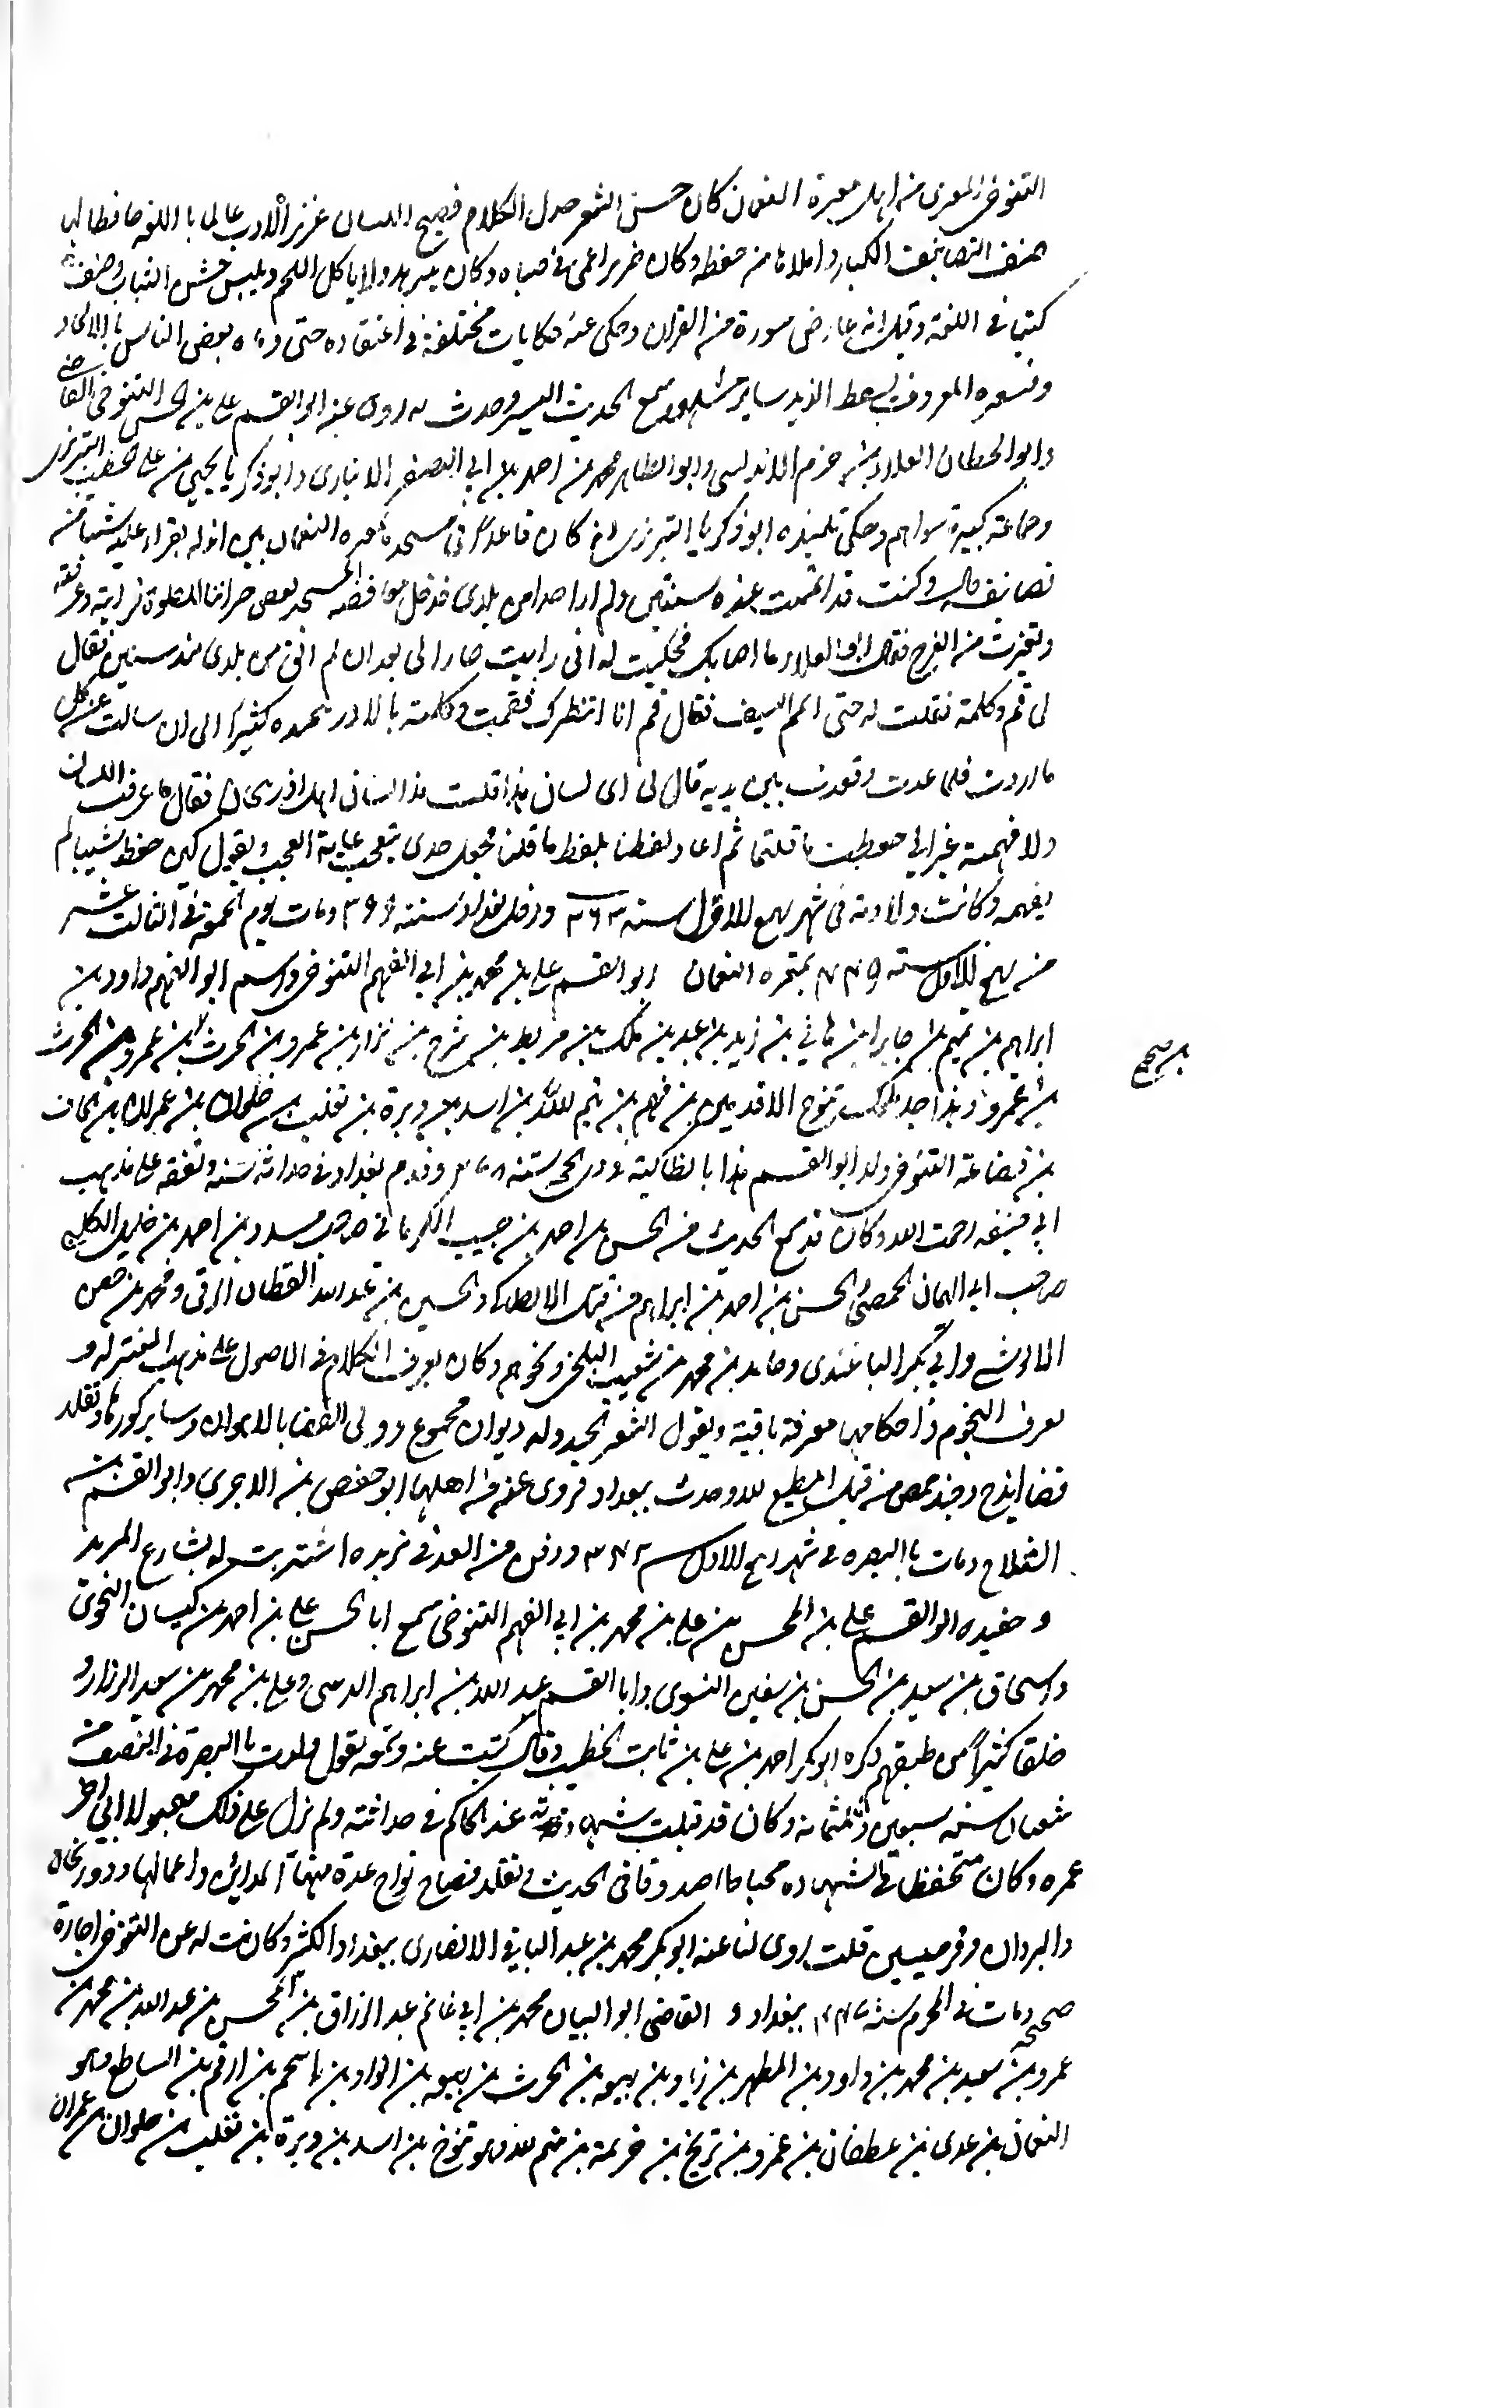 التنوخي المعري من اهل معرة النعمان كان حسن الشعر جزل الكلام فصيح اللسان غزير الادب عالما باللغة حافظا لها
صنف التصانيف الكبار واملاها من حفظه وكان ضريرا عمى في صباه وكان يتزهد ولا ياكل اللحم ويلبس خشن الثياب وصنف
كتبا في اللغة وقيل انه عارض سورة من القران وحكى عنه حكايات مختلفة في اعتقاده حتى رماه بعض الناس بالالحاد
وشعره المعروف بسقط الزند ساير مشهور سمع الحديث اليسير وحدث به روى عنه ابو القسم علي بن المحسن التنوخي القاضي
وابو الخطاب العلاء بن حزم الاندلسي وابو الطاهر محمد بن احمد بن ابي الصقر الانباري وابو ذكريا يحيى بن علي الخطيب التبريزي
وجماعة كبيرة سواهم وحكى تلميذه ابو ذكريا التبريزي انه كان قاعدا في مسجده بمعرة النعمان بين يديه يقرا عليه شيئا من
تصانيفه قال وكنت قد اتممت عنده سنتين ولم ار احدا من بلدي فدخل مغافصة المسجد بعض جيراننا للصلوة فرايته وعرفته
وتغيرت من الفرح فقال ابو العلاء ما اصابك فحكيت له اني رايت جارا لي بعد ان لم الق من بلدي منذ سنتين فقال
لي قم وكلمه فقلت له حتى اتمم السبق فقال قم انا انتظرك فقمت وكلمته بالاذربيجية كثيرا الى ان سالت عن كل
ما اردت فلما عدت وقعدت بين يديه قال لي اي لسان هذا قلت هذا لسان اهل اذربيجان فقال ما عرفت اللسان
ولا فهمته غير اني حفظت ما قلتما ثم اعاد لفظنا بلفظ ما قلنا فجعل جاري يتعجب غاية العجب ويقول كيف حفظ شيئا لم
يفهمه وكانت ولادته في شهر ربيع الاول سنة ٣٦٣ ودخل بغداد سنة ٣٩٩ ومات يوم الجمعة في الثالث عشر
من ربيع الاول سنة ٤٤٩ بمعرة النعمان ابو القسم علي بن محمد بن ابي الفهم التنوخي واسم ابو الفهم داود بن
ابراهيم بن تميم بن جابر بن هاني بن زيد بن عبد بن ملك بن مريط بن شرح بن نزار بن عمرو بن الحرث بن عمرو بن الحرث
بن عمرو وهذا احد ملوك تنوخ الاقدمين بن فهم بن تيم الله بن اسد بن وبرة بن تغلب بن حلوان بن عمران بن الحاف
بن قضاعة التنوخي ولد ابو القسم هذا بانطاكية في ذي الحجة سنة ٢٧٨ وقدم بغداد في حداثة سنه وتفقه على مذهب
ابي حنيفه رحمت الله وكان قد سمع الحديث من الحسن بن احمد بن حبيب الكرماني صاحب مسدد بن احمد بن خليل الحلبي
صاحب ابي اليمان الحمصي الحسن بن احمد بن ابراهيم بن فيل الانطاكي والحسين بن عبد الله القطان الرقي ومحمد بن حصن
الالوسي وابي بكر الباغندي وحامد بن محمد بن شعيب البلخي ونحوهم وكان يعرف الكلام في الاصول على مذهب المعتزله و
يعرف النجوم واحكامها معرفة ثاقبة ويقول الشعر الجيد وله ديوان مجموع وولي القضا بالاهواز وساير كورها وتقلد
قضا ايذج وجند حمص من قبل المطيع لله وحدث ببغداد فروى عنه من اهلها ابو حفص بن الاجري وابو القسم بن
الثلاج ومات بالبصره في شهر ربيع الاول سنة ٣٤٢ ودفن من الغد في تربة اشتريت له بشارع المربد
وحفيده ابو القسم علي بن المحسن بن علي بن محمد بن ابي الفهم التنوخي سمع ابا الحسن علي بن احمد بن كيسان النحوي
واسحاق بن سعيد بن الحسن بن سفين النسوي وابا القسم عبد الله بن ابراهيم وعلي بن محمد بن سعيد الرزاز و
خلقا كثيرا من طبقتهم ذكره ابو بكر احمد بن علي بن ثابت الخطيب وقال كتبت عنه وسمعته يقول ولدت بالبصرة في النصف من
شعبان سنه سبعين وثلثمائه وكان قد قبلت شهادته عند الحاكم في حداثته ولم يزل على ذلك مقبولا الى اخر
عمره وكان متحفظا في الشهاده محتاطا صدوقا في الحديث وتقلد قضاء نواح عدة منها المداين واعمالها ودورنجان
والبردان وقرميسين قلت روى لنا عنه ابو بكر محمد بن عبد الباقي الانصاري ببغداد الكثير وكانت له عن التنوخي اجازة
صحيحه ومات في المحرم سنة ٤٤٧ ببغداد و القاضي ابو البيان محمد بن ابي غانم عبد الرزاق بن المحسن بن عبد الله بن محمد بن
عمرو بن سعيد بن محمد بن داود بن المطهر بن زياد بن ربيعه بن الحرث بن ربيعه بن انوار بن اسحم بن ارقم بن الساطع وهو
النعمان بن عدي بن غطفان بن عمرو بن بريح بن خزيمة بن تيم لله وهو تنوخ بن اسد بن وبرة بن تغلب بن حلوان بن عمران